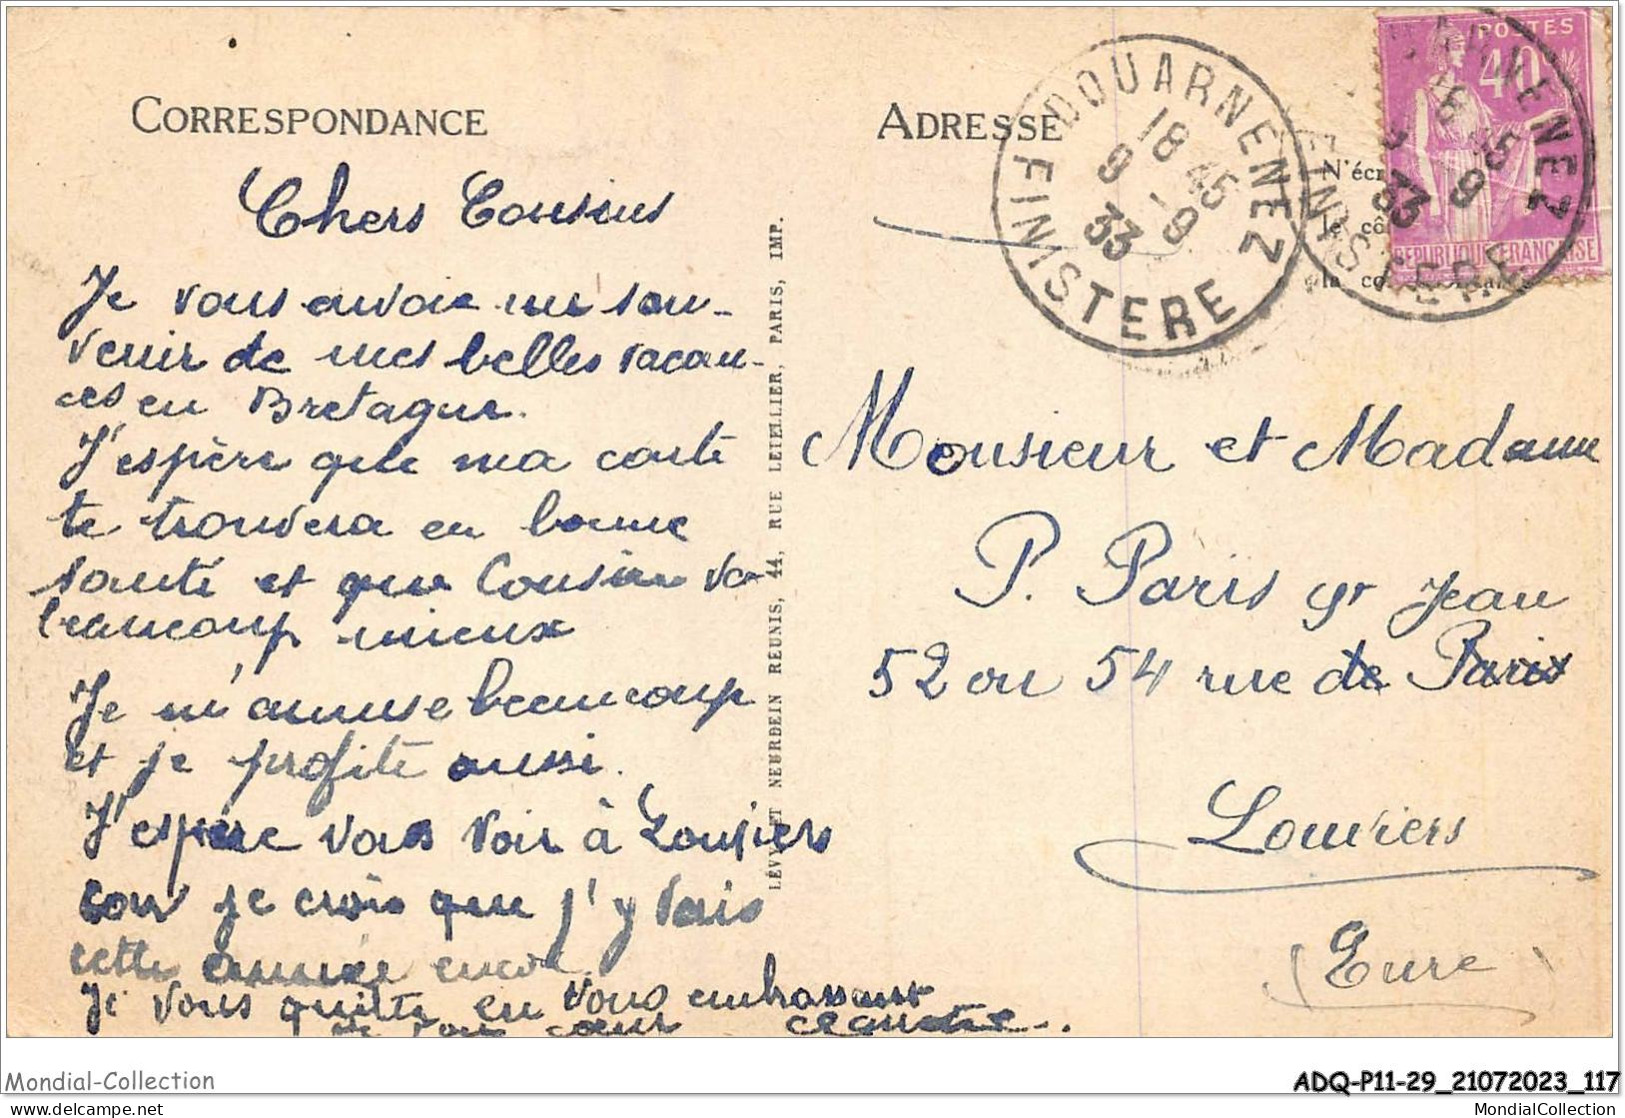 CORRESPONDANCE
Chers Cousins
Je vous envoie un sou-
venir de mes belles vacan-
ces en Bretagne.
J'espère que ma carte
te trouvera en bonne
santé et que Cousine va
beaucoup mieux
Je m'amuse beaucoup
et je profite aussi.
J'espère vous voir à Louviers
car je crois que j'y vais
cette année encore
Je vous quitte en vous embrassant
de tout cœur
LÉVY ET NEURDEIN RÉUNIS, 44, RUE LETELLIER, PARIS, IMP.
ADRESSE
N'écr
le cô
la co
DOUARNENEZ
18 45
9 -9
33
FINISTERE
POSTES
40
REPUBLIQUE FRANÇAISE
ARNENEZ
18 45
9 -9
33
FINISTERE
Monsieur et Madame
P. Paris gr Jean
52 ou 54 rue de Paris
Louviers
(Eure)
Mondial-Collection
ADQ-P11-29_21072023_117
delcampe.net
MondialCollection